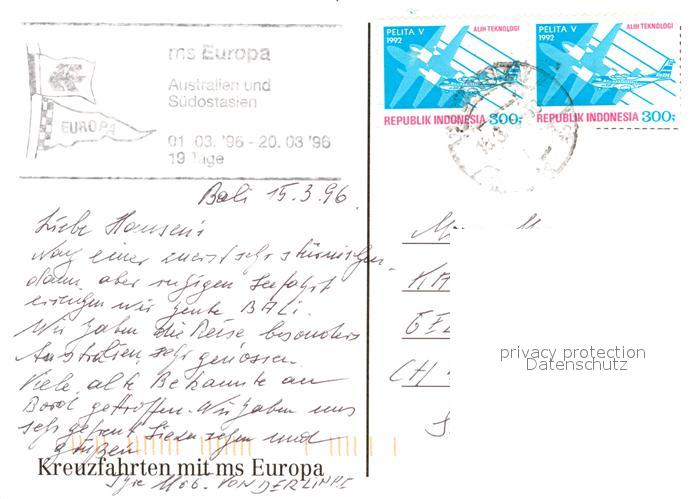 ms Europa
Australien und
Südostasien
EUROPA
01. 03. '96 - 20. 03 '96
19 Tage
PELITA V
1992
ALIH TEKNOLOGI
REPUBLIK INDONESIA 300;
PELITA V
1992
ALIH TEKNOLOGI
REPUBLIK INDONESIA 300;
Bali 15.3.96.
Liebe Hansen's
Nach einer zuerst sehr stürmischen
dann aber ruhigen Seefahrt
wir heute BALI.
Wir haben die Reise besonders
Australien, sehr genossen.
Viele alte Bekannte an
Bord getroffen. Wir haben uns
sehr gefreut
CH
privacy protection
Datenschutz
Kreuzfahrten mit ms Europa